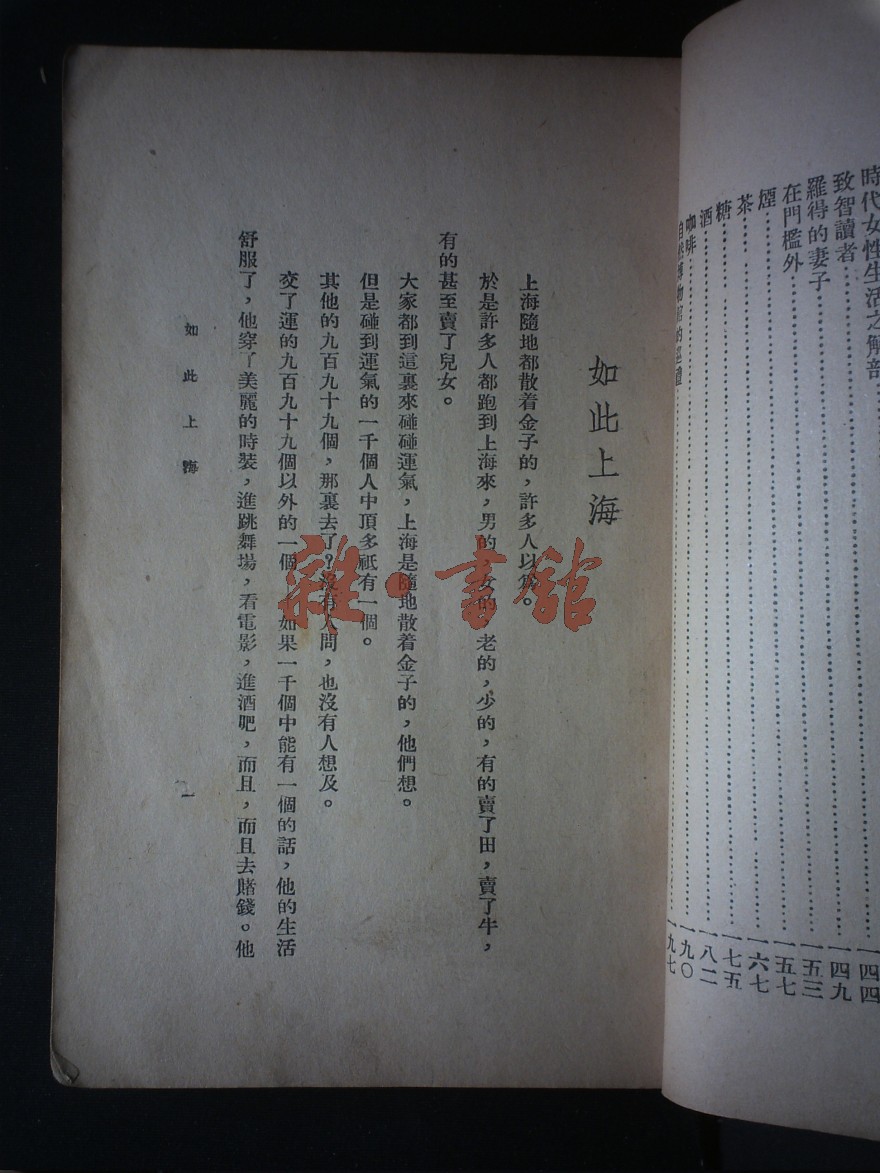 時代女性生活之解剖……一四四
致智讀者……一四九
羅得的妻子……一五三
在門檻外……一五七
煙……一六七
茶……一七五
糖……一八二
酒……一九〇
咖啡……一九七
如此上海
上海隨地都散着金子的，許多人以爲。
於是許多人都跑到上海來，男的，女的，老的，少的，有的賣了田，賣了牛，
有的甚至賣了兒女。
大家都到這裏來碰碰運氣，上海是隨地散着金子的，他們想。
但是碰到運氣的一千個人中頂多祇有一個。
其他的九百九十九個，那裏去了？沒有人問，也沒有人想及。
交了運的九百九十九個以外的一個，如果一千個中能有一個的話，他的生活
舒服了，他穿了美麗的時裝，進跳舞場，看電影，進酒吧，而且，而且去賭錢。他
如此上海
一
雜·書館